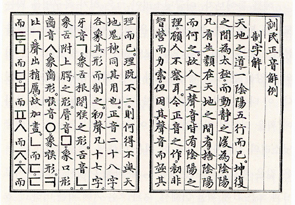 訓民正音解例
制字解
天地之道一陰陽五行而已坤復
之間爲太極而動靜之後爲陰陽
凡有生類在天地之間者捨陰陽
而何之故人之聲音皆有陰陽之
理顧人不察耳今正音之作初非
智營而力索但因其聲音而極其
理而已理旣不二則何得不與天
地鬼神同其用也正音二十八字
各象其形而制之初聲凡十七字
牙音ㄱ象舌根閉喉之形舌音ㄴ
象舌附上腭之形脣音ㅁ象口形
齒音ㅅ象齒形喉音ㅇ象喉形ㅋ
比ㄱ聲出稍厲故加畫ㄴ而ㄷㄷ
而ㅌㅁ而ㅂㅂ而ㅍㅅ而ㅈㅈ而